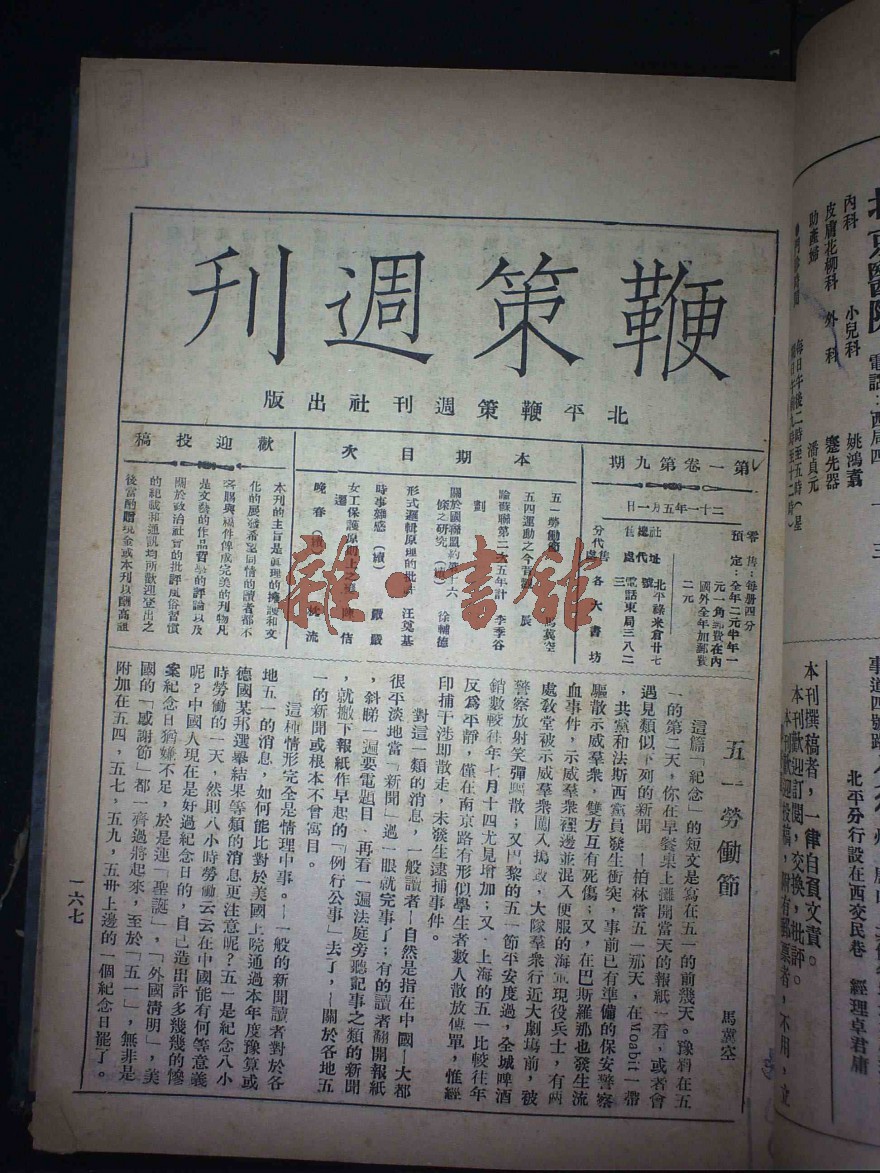 鞭策週刊
北平鞭策週刊社出版
第一卷第九期
二十一年五月一日
零售：每册四分
預定：全年二元半年一
元一角郵費在內
國外全年加郵費
二元
社址 北平祿米倉廿七號
電話東局三八二三
分代售處 各大書坊
本期目次
五一勞働節 馬冀空
五四運動之今昔觀 辰
論蘇聯第二次五年計劃 李季谷
關於國聯盟約第十六條之研究（續） 徐輔德
形式邏輯原理的批評 汪奠基
時事雜感（續） 嚴嚴
女工保護原則上之
晚春（續） 沈流
歡迎投稿
本刊的主旨是眞理的擁護和文
化的展發希望同情的讀者都不
客賜與稿件俾成完美的刊物凡
是文藝的作品哲學的評論以及
關於政治社會的批評風俗習慣
的記載和通訊均所歡迎登出之
後當酌贈現金或本刊以酬高誼
五一勞働節
馬冀空
這篇「紀念」的短文是寫在五一的前幾天。豫料在五
一的第二天，你在早餐桌上攤開當天的報紙一看，或者會
遇見類似下列的新聞——柏林當五一那天，在Moabit一帶
，共黨和法斯西黨員發生衝突，事前已有準備的保安警察
驅散示威羣衆，雙方互有死傷；又，在巴斯羅那也發生流
血事件，示威羣衆裡邊並混入便服的海軍現役兵士，有兩
處敎堂被示威羣衆闖入搗毀，大隊羣衆行近大劇塲前，被
警察放射笑彈驅散；又巴黎的五一節平安度過，全城啤酒
銷數較往年七月十四尤見增加；又，上海的五一比較往年
反爲平靜，僅在南京路有形似學生者數人散放傳單，惟經
印捕干涉卽散走，未發生逮捕事件。
對這一類的消息，一般讀者—自然是指在中國—大都
很平淡地當「新聞」過一眼就完事了；有的讀者翻開報紙
，斜睇一遍要電題目，再看一遍法庭旁聽記事之類的新聞
，就撇下報紙作早起的「例行公事」去了，—關於各地五
一的新聞或根本不曾寓目。
這種情形完全是情理中事。—一般的新聞讀者對於各
地五一的消息，如何能比對於美國上院通過本年度豫算或
德國某邦選舉結果等類的消息更注意呢？五一是紀念八小
時勞働的一天，然則八小時勞働云云在中國能有何等意義
呢？中國人現在是好過紀念日的，自己造出許多幾幾的慘
案紀念日猶嫌不足，於是連「聖誕」，「外國清明」，美
國的「感謝節」都一齊過將起來，至於「五一」，無非是
附加在五四，五七，五九，五卅上邊的一個紀念日罷了。
一六七
雜·書館
電話：西局四一三
內科 小兒科 姚鴻翥
皮膚花柳科 外科 蹇先器
助產婦 潘貞元
每日午後二時至五時（星
本刊撰稿者，一律自負文責。
本刊歡迎訂閱，交換，批評。
北平分行設在西交民巷 經理卓君庸